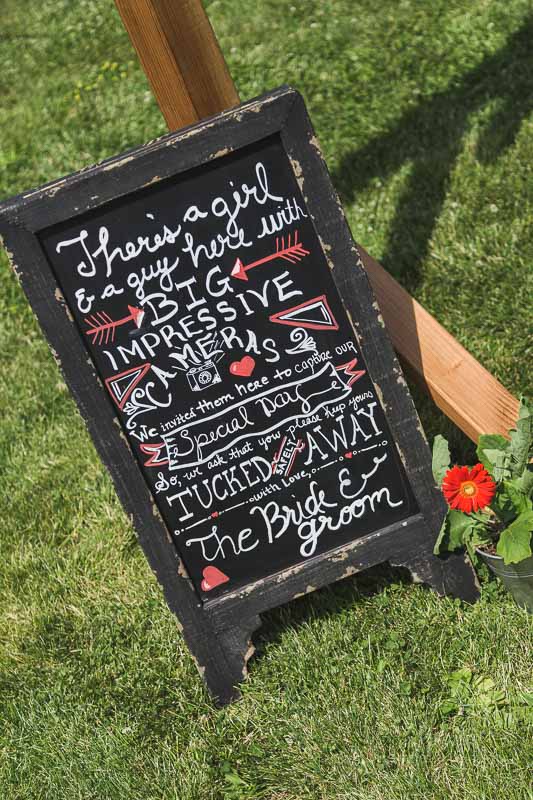 There's a girl
& a guy here with
BIG
IMPRESSIVE
CAMERAS
We invited them here to capture our
Special Day
So, we ask that you please keep yours
TUCKED SAFELY AWAY
with love,
The Bride &
groom